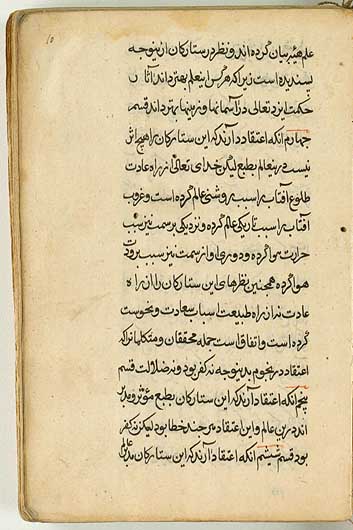 علم هیئت بیان کرده اند و نظر در ستارکان ازینوجه
پسندیده است زیرا که هر کس این علم بهتر داند آثار
حکمت ایزد تعالی در آسمانها و زمینها بهتر داند قسم
چهارم آنکه اعتقاد دارند که این ستارکان را هیچ اثر
نیست درینعالم بطبع لیکن خدای تعالی از راه عادت
طلوع آفتاب را سبب روشنی عالم کرده است و غروب
آفتاب را سبب تاریکی عالم کرده و نزدیکی بر سمت نیز سبب
حرارت هوا کرده و دوری او از سمت نیز سبب برودت
هوا کرده همچنین نظرهای این ستارکان را از راه
عادت نه از راه طبیعت اسباب سعادت و نحوست
کرده است و اتفاق است جمله محققان و متکلمانرا که
اعتقاد در نجوم بدینوجه نه کفر بود و نه ضلالت قسم
پنجم آنکه اعتقاد دارند که این ستارکان بطبع مؤثر و مدبر
اند درین عالم و این اعتقاد هر چند خطا بود لیکن نه کفر
بود قسم ششم آنکه اعتقاد دارند که این ستارکان مدبر عالم